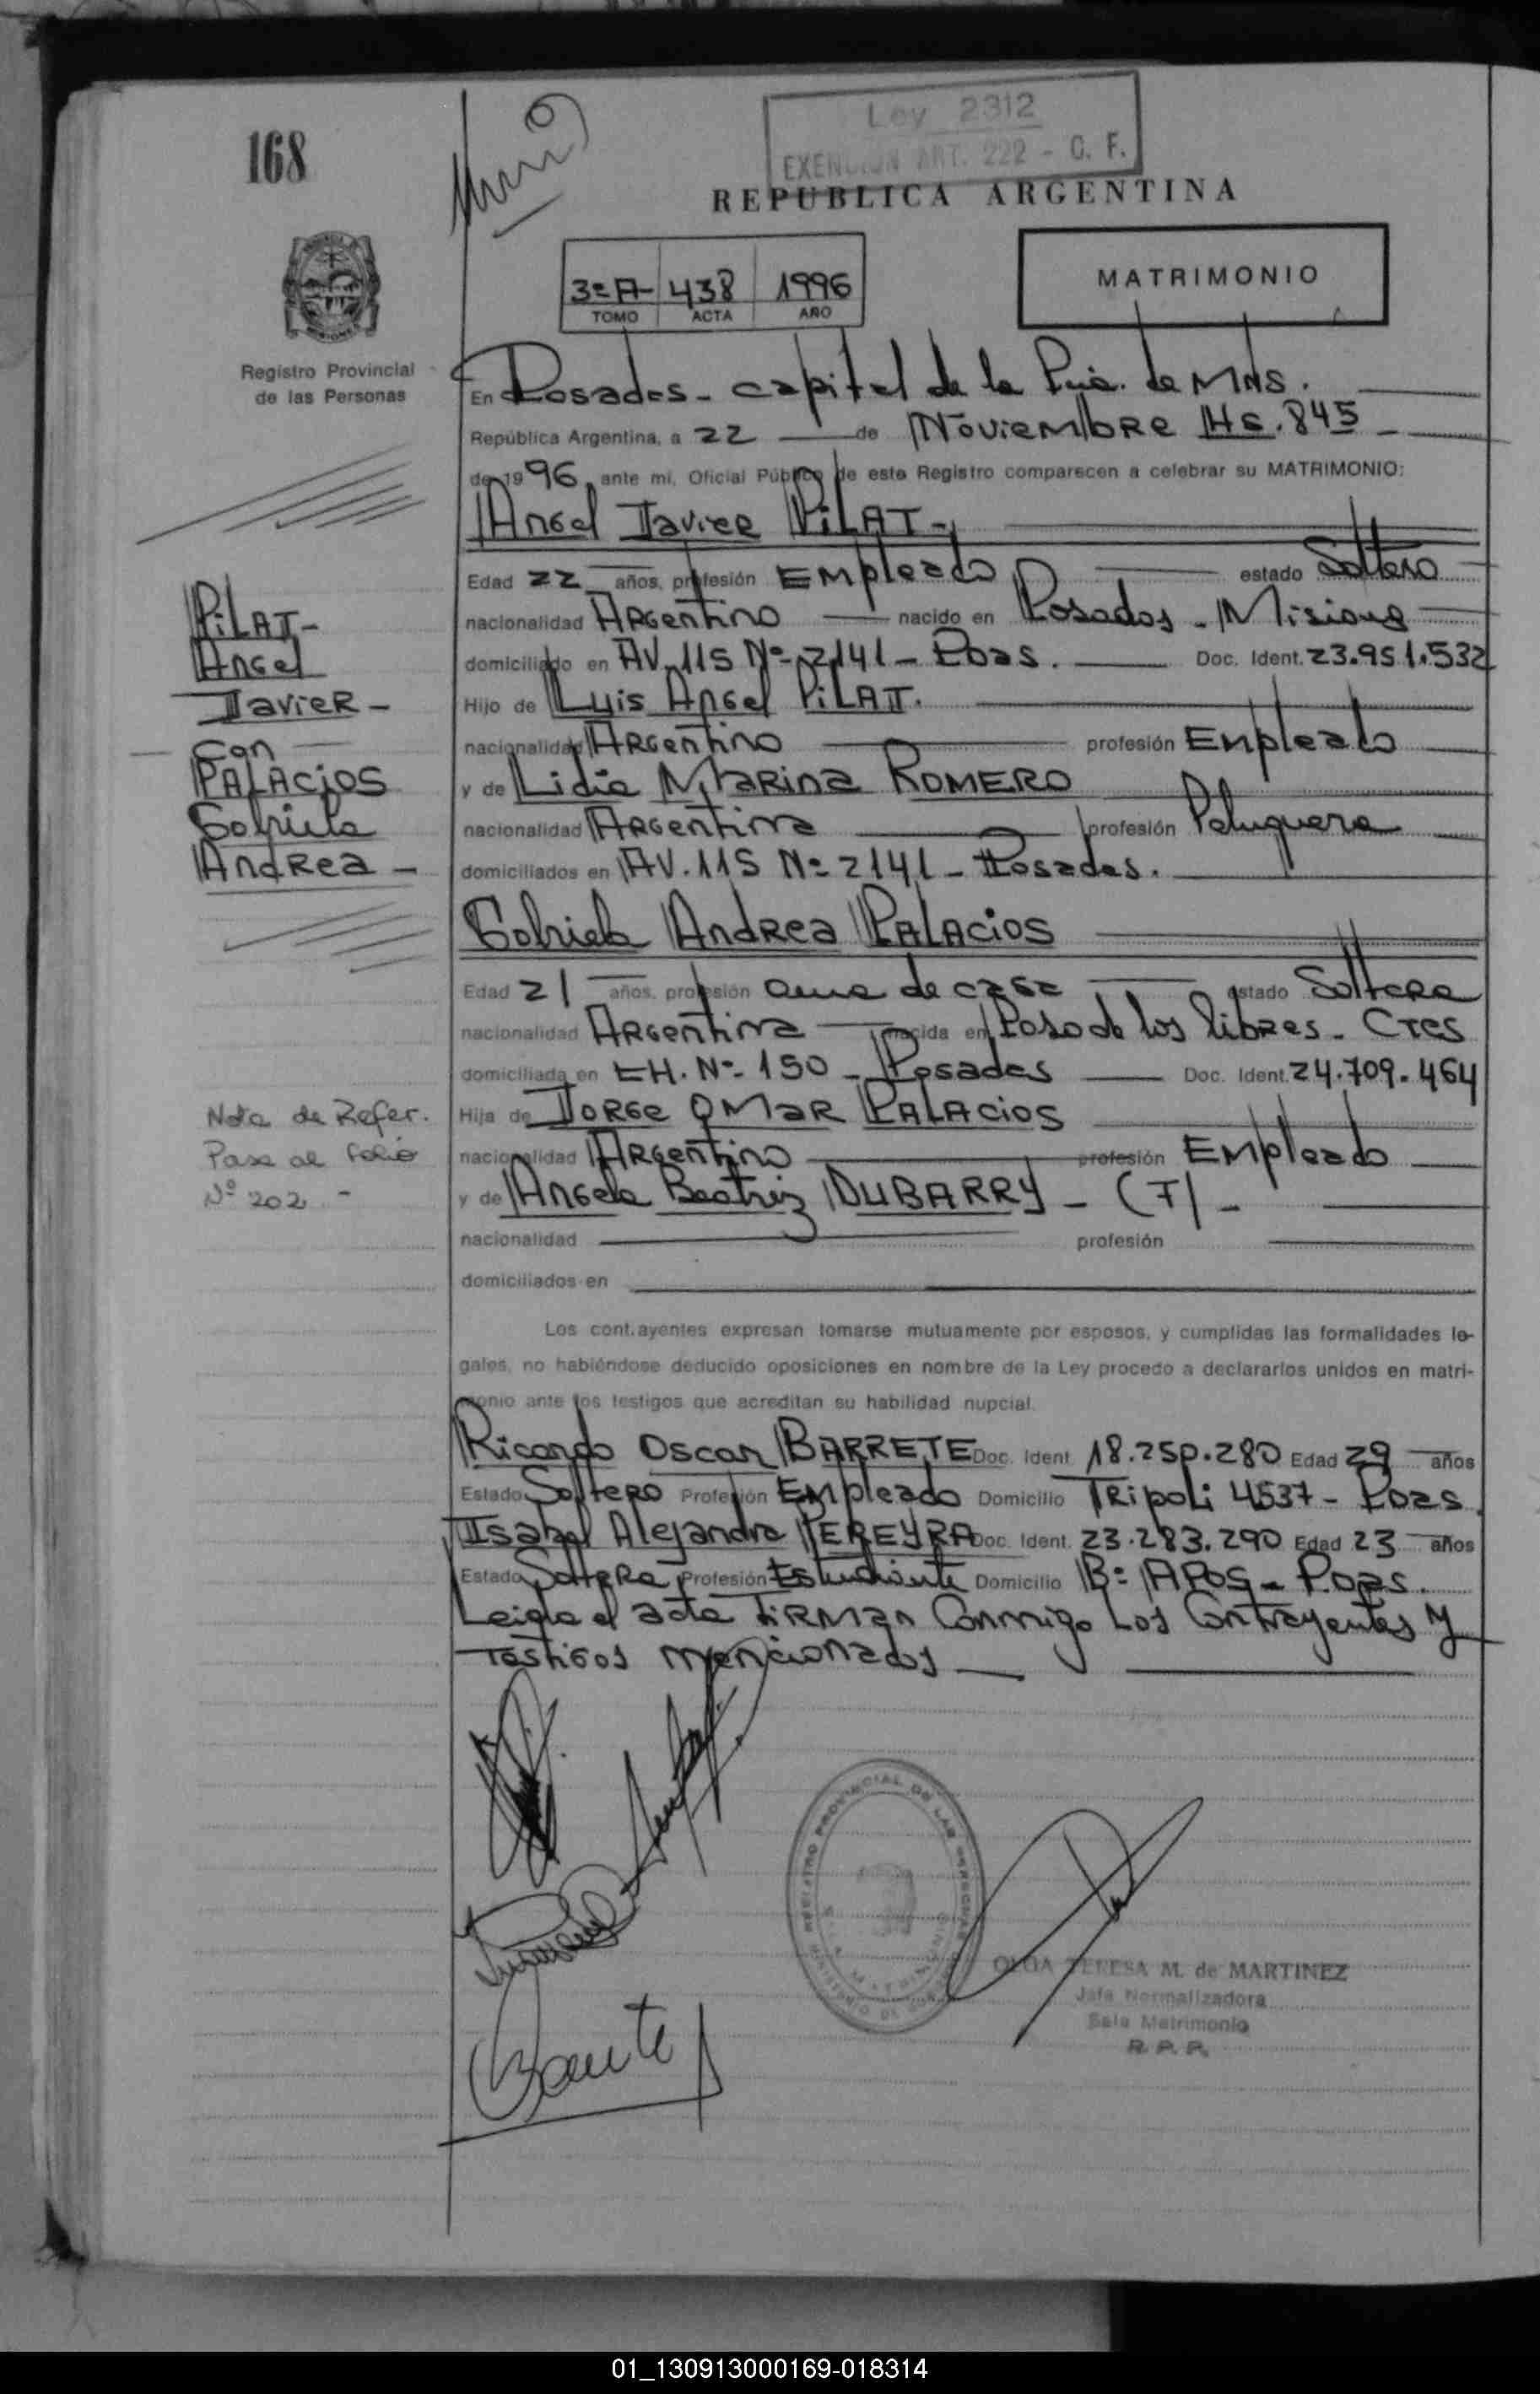 168
Ley 2312
EXENCION ART. 222 - C. F.
REPUBLICA ARGENTINA
3º A- 438 1996
TOMO ACTA AÑO
MATRIMONIO
Registro Provincial
de las Personas
En Posadas - capital de la Pcia. de MNS.
República Argentina, a 22 de Noviembre Hs. 845
de 1996, ante mi, Oficial Público de este Registro comparecen a celebrar su MATRIMONIO:
Angel Javier PILAT-
Edad 22 años, profesión Empleado estado Soltero
nacionalidad Argentino nacido en Posadas - Misiones
domiciliado en AV. 115 Nº 2141 - Pdas. Doc. Ident. 23.951.532
Hijo de Luis Angel PILAT.
nacionalidad Argentino profesión Empleado
y de Lidia Marina ROMERO
nacionalidad Argentina profesión Peluquera
domiciliados en AV. 115 Nº 2141 - Posadas.
Gabriela Andrea PALACIOS
Edad 21 años, profesión ama de casa estado Soltera
nacionalidad Argentina nacida en Paso de los libres - Ctes
domiciliada en CH. Nº 150 - Posadas Doc. Ident. 24.709.464
Hija de Jorge Omar PALACIOS
nacionalidad Argentino profesión Empleado
y de Angela Beatriz DUBARRY - (F) -
nacionalidad profesión
domiciliados en
PILAT-
Angel
Javier -
Con
PALACIOS
Gabriela
Andrea -
Nota de Refer.
Pasa al folio
Nº 202 -
Los contrayentes expresan tomarse mutuamente por esposos, y cumplidas las formalidades le-
gales, no habiéndose deducido oposiciones en nombre de la Ley procedo a declararlos unidos en matri-
monio ante los testigos que acreditan su habilidad nupcial.
Ricardo Oscar BARRETE Doc. Ident. 18.250.280 Edad 29 años
Estado Soltero Profesión Empleado Domicilio Tripoli 4537 - Pdas.
Isabel Alejandra PEREYRA Doc. Ident. 23.283.290 Edad 23 años
Estado Soltera Profesión Estudiante Domicilio Bº APOS - Pdas.
Leida el acta firman Conmigo Los Contrayentes y
Testigos mencionados
REGISTRO PROVINCIAL DE LAS PERSONAS
OLGA TERESA M. de MARTINEZ
Jefa Normalizadora
Sala Matrimonio
R. P. P.
01_130913000169-018314